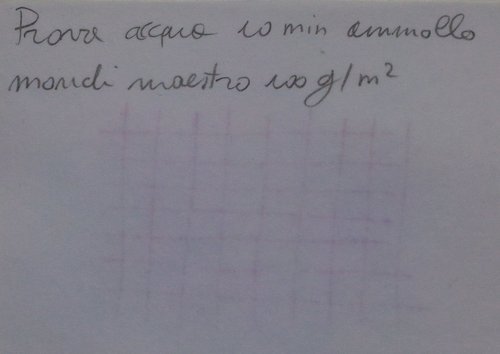 Prova acqua 10 min ammollo
mondi maestro 100 g/m²